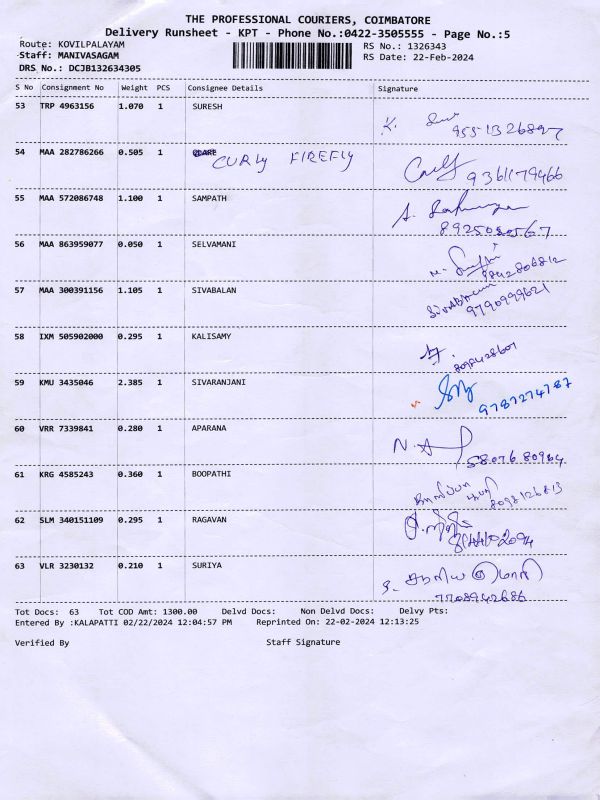 THE PROFESSIONAL COURIERS, COIMBATORE
Delivery Runsheet - KPT - Phone No.:0422-3505555 - Page No.:5
Route: KOVILPALAYAM RS No.: 1326343
Staff: MANIVASAGAM RS Date: 22-Feb-2024
DRS No.: DCJB132634305
S No Consignment No Weight PCS Consignee Details Signature
53 TRP 4963156 1.070 1 SURESH K.
54 MAA 282786266 0.505 1 CURLY FIREFLY
9361179466
55 MAA 572086748 1.100 1 SAMPATH
56 MAA 863959077 0.050 1 SELVAMANI
9842806812
57 MAA 300391156 1.105 1 SIVABALAN
9790999621
58 IXM 505902000 0.295 1 KALISAMY
59 KMU 3435046 2.385 1 SIVARANJANI
9787274787
60 VRR 7339841 0.280 1 APARANA
61 KRG 4585243 0.360 1 BOOPATHI
8098126813
62 SLM 340151109 0.295 1 RAGAVAN
63 VLR 3230132 0.210 1 SURIYA
7708942686
Tot Docs: 63 Tot COD Amt: 1300.00 Delvd Docs: Non Delvd Docs: Delvy Pts:
Entered By :KALAPATTI 02/22/2024 12:04:57 PM Reprinted On: 22-02-2024 12:13:25
Verified By Staff Signature